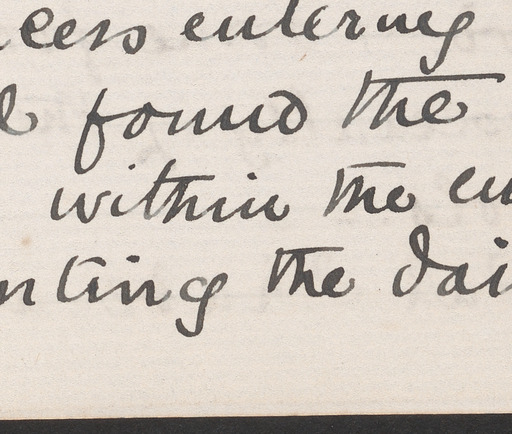 cess entering
found the
within the
nting the dai